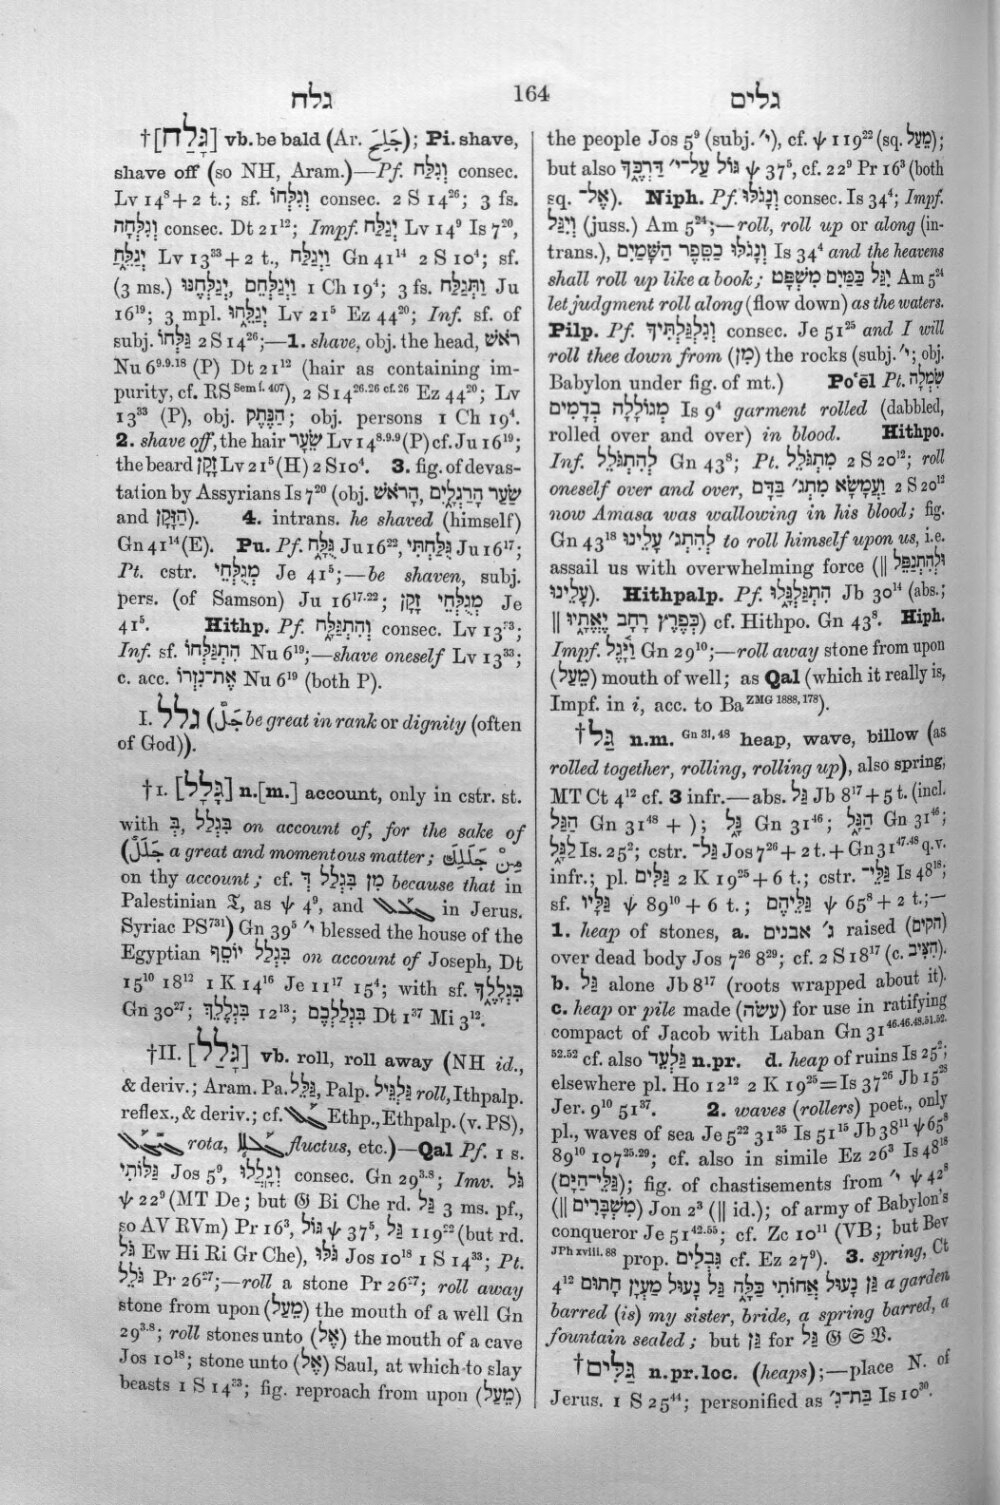 גלח 164 גלים
†[גָּלַח] vb. be bald (Ar. جَلِحَ); Pi. shave,
shave off (so NH, Aram.)—Pf. וְגִלַּח consec.
Lv 14⁸ + 2 t.; sf. וְגִלְּחוֹ consec. 2 S 14²⁶; 3 fs.
וְגִלְּחָה consec. Dt 21¹²; Impf. יְגַלַּח Lv 14⁹ Is 7²⁰,
יְגַלֵּחַ Lv 13³³ + 2 t., וַיְגַלַּח Gn 41¹⁴ 2 S 10⁴; sf.
(3 ms.) יְגַלְּחֶנּוּ, וַיְגַלְּחֵם 1 Ch 19⁴; 3 fs. וַתְּגַלַּח Ju
16¹⁹; 3 mpl. יְגַלֵּחוּ Lv 21⁵ Ez 44²⁰; Inf. sf. of
subj. גַּלְּחוֹ 2 S 14²⁶;—1. shave, obj. the head, רֹאשׁ
Nu 6⁹·⁹·¹⁸ (P) Dt 21¹² (hair as containing im-
purity, cf. RS Sem i. 407), 2 S 14²⁶·²⁶ cf. ²⁶ Ez 44²⁰; Lv
13³³ (P), obj. הַנֶּתֶק; obj. persons 1 Ch 19⁴.
2. shave off, the hair שֵׂעָר Lv 14⁸·⁹·⁹ (P) cf. Ju 16¹⁹;
the beard זָקָן Lv 21⁵ (H) 2 S 10⁴. 3. fig. of devas-
tation by Assyrians Is 7²⁰ (obj. הָרֹאשׁ, שַׂעַר הָרַגְלַיִם
and הַזָּקָן). 4. intrans. he shaved (himself)
Gn 41¹⁴ (E). Pu. Pf. גֻּלָּח Ju 16²², גֻּלַּחְתִּי Ju 16¹⁷;
Pt. cstr. מְגֻלְּחֵי Je 41⁵;—be shaven, subj.
pers. (of Samson) Ju 16¹⁷·²²; מְגֻלְּחֵי זָקָן Je
41⁵. Hithp. Pf. וְהִתְגַּלָּח consec. Lv 13³³;
Inf. sf. הִתְגַּלְּחוֹ Nu 6¹⁹;—shave oneself Lv 13³³;
c. acc. אֶת־נִזְרוֹ Nu 6¹⁹ (both P).
I. גלל (جَلَّ be great in rank or dignity (often
of God)).
†I. [גָּלָל] n.[m.] account, only in cstr. st.
with בְּ, בִּגְלַל on account of, for the sake of
(جَلَلٌ a great and momentous matter; مِنْ جَلَلِكَ
on thy account; cf. מִן בִּגְלַל דְּ because that in
Palestinian 𝔗, as ψ 4⁹, and in Jerus.
Syriac PS⁷³¹) Gn 39⁵ י׳ blessed the house of the
Egyptian בִּגְלַל יוֹסֵף on account of Joseph, Dt
15¹⁰ 18¹² 1 K 14¹⁶ Je 11¹⁷ 15⁴; with sf. בִּגְלָלֶךָ
Gn 30²⁷; בִּגְלָלֵךְ 12¹³; בִּגְלַלְכֶם Dt 1³⁷ Mi 3¹².
†II. [גָּלַל] vb. roll, roll away (NH id.,
& deriv.; Aram. Pa. גַּלֵּל, Palp. גַּלְגֵּיל roll, Ithpalp.
reflex., & deriv.; cf. Ethp., Ethpalp. (v. PS),
rota, fluctus, etc.)—Qal Pf. 1 s.
גַּלּוֹתִי Jos 5⁹, וְגָלֲלוּ consec. Gn 29³·⁸; Imv. גֹּל
ψ 22⁹ (MT De; but 𝔊 Bi Che rd. גַּל 3 ms. pf.,
so AV RVm) Pr 16³, גּוֹל ψ 37⁵, גַּל 119²² (but rd.
גֹּל Ew Hi Ri Gr Che), גֹּלּוּ Jos 10¹⁸ 1 S 14³³; Pt.
גֹּלֵל Pr 26²⁷;—roll a stone Pr 26²⁷; roll away
stone from upon (מֵעַל) the mouth of a well Gn
29³·⁸; roll stones unto (אֶל) the mouth of a cave
Jos 10¹⁸; stone unto (אֶל) Saul, at which to slay
beasts 1 S 14³³; fig. reproach from upon (מֵעַל)
the people Jos 5⁹ (subj. י׳), cf. ψ 119²² (sq. מֵעַל);
but also גּוֹל עַל־י׳ דַּרְכֶּךָ ψ 37⁵, cf. 22⁹ Pr 16³ (both
sq. אֶל־). Niph. Pf. וְנָגֹלּוּ consec. Is 34⁴; Impf.
וְיִגַּל (juss.) Am 5²⁴;—roll, roll up or along (in-
trans.), וְנָגֹלּוּ כַסֵּפֶר הַשָּׁמָיִם Is 34⁴ and the heavens
shall roll up like a book; יִגַּל כַּמַּיִם מִשְׁפָּט Am 5²⁴
let judgment roll along (flow down) as the waters.
Pilp. Pf. וְגִלְגַּלְתִּיךָ consec. Je 51²⁵ and I will
roll thee down from (מִן) the rocks (subj. י׳; obj.
Babylon under fig. of mt.) Poʻēl Pt. שִׂמְלָה
מְגוֹלָלָה בְדָמִים Is 9⁴ garment rolled (dabbled,
rolled over and over) in blood. Hithpo.
Inf. לְהִתְגֹּלֵל Gn 43⁸; Pt. מִתְגֹּלֵל 2 S 20¹²; roll
oneself over and over, וַעֲמָשָׂא מִתְג׳ בַּדָּם 2 S 20¹²
now Amasa was wallowing in his blood; fig.
Gn 43¹⁸ לְהִתְג׳ עָלֵינוּ to roll himself upon us, i.e.
assail us with overwhelming force (‖ וּלְהִתְנַפֵּל
עָלֵינוּ). Hithpalp. Pf. הִתְגַּלְגָּלוּ Jb 30¹⁴ (abs.;
‖ כְּפֶרֶץ רָחָב יֶאֱתָיוּ) cf. Hithpo. Gn 43⁸. Hiph.
Impf. וַיָּגֶל Gn 29¹⁰;—roll away stone from upon
(מֵעַל) mouth of well; as Qal (which it really is,
Impf. in i, acc. to Ba ZMG 1888, 178).
†גַּל n.m. Gn 31, 48 heap, wave, billow (as
rolled together, rolling, rolling up), also spring,
MT Ct 4¹² cf. 3 infr.—abs. גַּל Jb 8¹⁷ + 5 t. (incl.
הַגַּל Gn 31⁴⁸ + ); גָּל Gn 31⁴⁶; הַגָּל Gn 31⁴⁶;
לַגָּל Is. 25²; cstr. גַּל־ Jos 7²⁶ + 2 t. + Gn 31⁴⁷·⁴⁸ q.v.
infr.; pl. גַּלִּים 2 K 19²⁵ + 6 t.; cstr. גַּלֵּי־ Is 48¹⁸;
sf. גַּלָּיו ψ 89¹⁰ + 6 t.; גַּלֵּיהֶם ψ 65⁸ + 2 t.;—
1. heap of stones, a. ג׳ אבנים raised (הקים)
over dead body Jos 7²⁶ 8²⁹; cf. 2 S 18¹⁷ (c. הִצִּיב).
b. גַּל alone Jb 8¹⁷ (roots wrapped about it).
c. heap or pile made (עשׂה) for use in ratifying
compact of Jacob with Laban Gn 31⁴⁶·⁴⁶·⁴⁸·⁵¹·⁵²·
⁵²·⁵² cf. also גַּלְעֵד n.pr. d. heap of ruins Is 25²;
elsewhere pl. Ho 12¹² 2 K 19²⁵ = Is 37²⁶ Jb 15²⁸
Jer. 9¹⁰ 51³⁷. 2. waves (rollers) poet., only
pl., waves of sea Je 5²² 31³⁵ Is 51¹⁵ Jb 38¹¹ ψ 65⁸
89¹⁰ 107²⁵·²⁹; cf. also in simile Ez 26³ Is 48¹⁸
(גַּלֵּי־הַיָּם); fig. of chastisements from י׳ ψ 42⁸
(‖ מִשְׁבָּרִים) Jon 2³ (‖ id.); of army of Babylon's
conqueror Je 51⁴²·⁵⁵; cf. Zc 10¹¹ (VB; but Bev
JPh xviii. 88 prop. גְּבֻלִים cf. Ez 27⁹). 3. spring, Ct
4¹² גַּן נָעוּל אֲחוֹתִי כַלָּה גַּל נָעוּל מַעְיָן חָתוּם a garden
barred (is) my sister, bride, a spring barred, a
fountain sealed; but גַּן for גַּל 𝔊 𝔖 𝔙.
†גַּלִּים n.pr.loc. (heaps);—place N. of
Jerus. 1 S 25⁴⁴; personified as בַּת־גּ׳ Is 10³⁰.